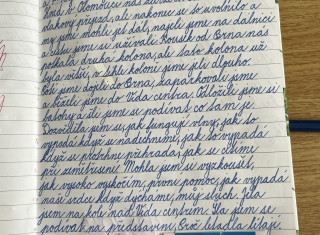 hned v Omicích nás
vlakový přejezd, ale nakonec se to uvolnilo a
my jsme mohli jet dál, najeli jsme na dálnici
a cestu jsme si užívali. Kousek od Brna nás
potkala druhá kolona, ale tato kolona už
byla větší, v téhle koloně jsme jeli dlouho.
Poté jsme dojeli do Brna, zaparkovali jsme
a běželi jsme do Vida centra. Odložili jsme si
batohy a šli jsme se podívat co tam je.
Dozvěděla jsem se, jak fungují vlny, jak to
vypadá když se nadechneme, jak to vypadá
když se protrhne přehrada, jak se cítíme
při zemětřesení. Mohla jsem si vyzkoušet,
jak vysoko vyskočím, první pomoc, jak vypadá
naše srdce když dýcháme, můj stisk. Jela
jsem na kole nad Vida centrem. Šla jsem se
podívat na představení, Proč letadla létají.